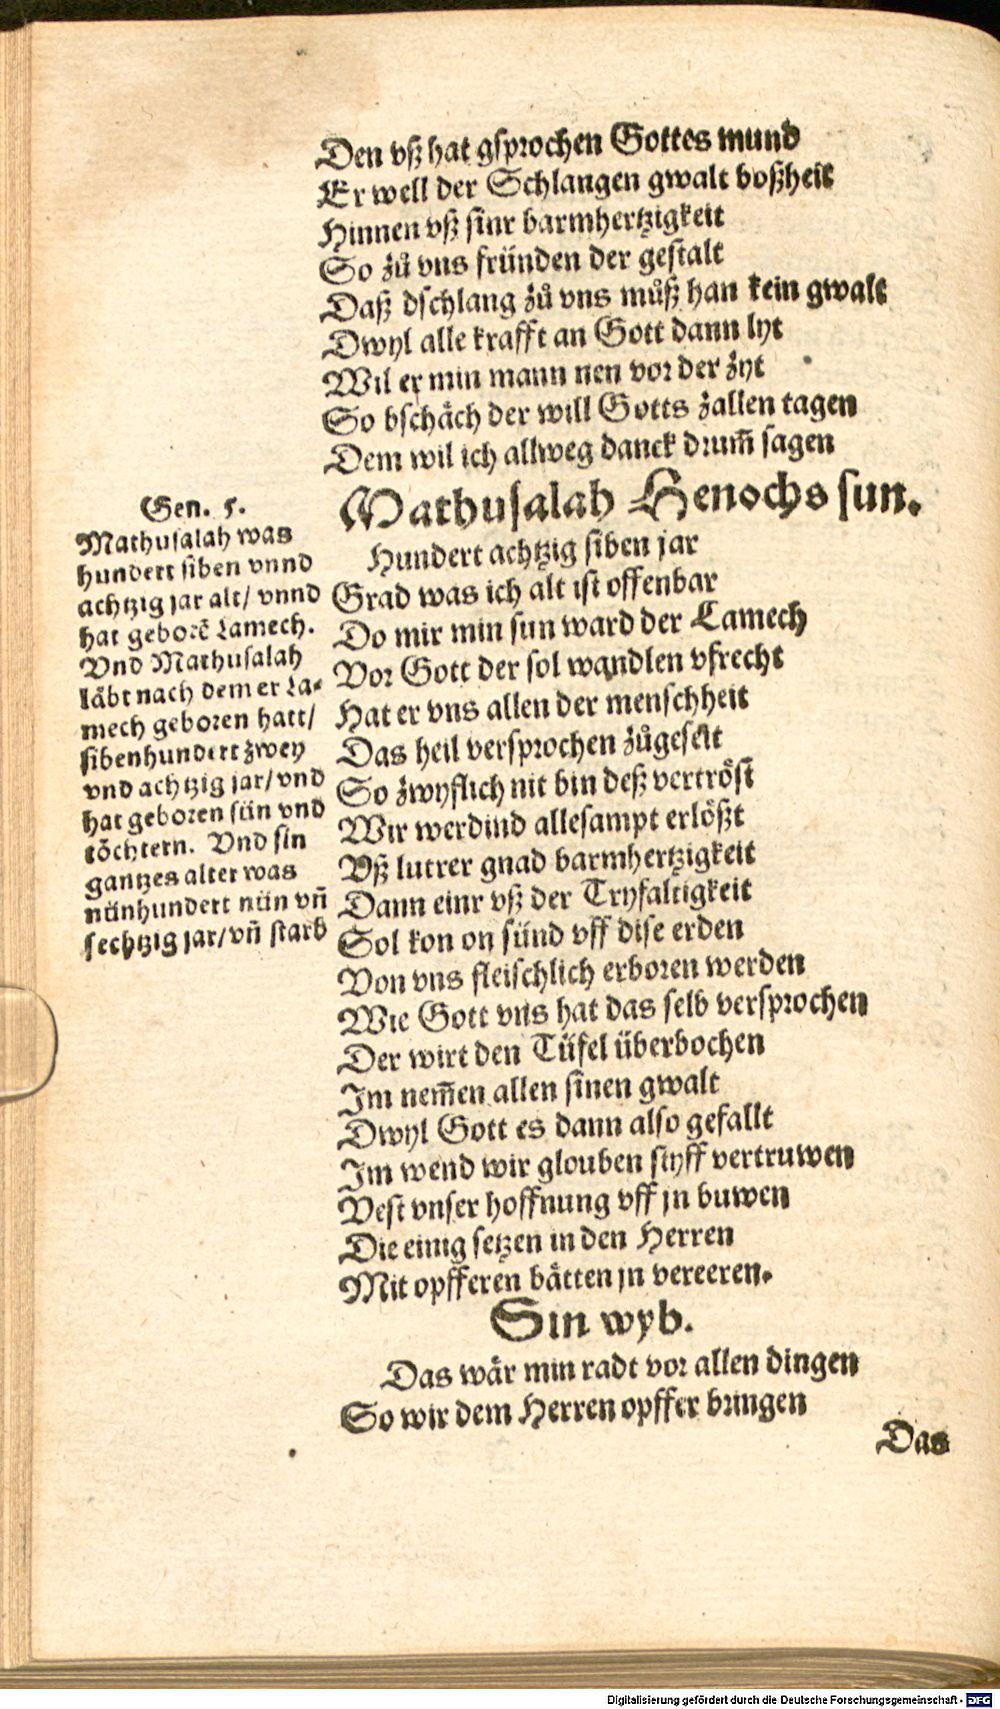 Den vß hat gsprochen Gottes mund
Er well der Schlangen gwalt boßheit
Hinnen vß sinr barmhertzigkeit
So zů vns fründen der gestalt
Daß dschlang zů vns můß han kein gwalt
Dwyl alle krafft an Gott dann lyt
Wil er min mann nen vor der zyt
So bschäch der will Gotts zallen tagen
Dem wil ich allweg danck drum̃ sagen
Mathusalah Henochs sun.
Hundert achtzig siben jar
Grad was ich alt ist offenbar
Do mir min sun ward der Lamech
Vor Gott der sol wandlen vfrecht
Hat er vns allen der menschheit
Das heil versprochen zůgeseit
So zwyflich nit bin deß vertröst
Wir werdind allesampt erlößt
Vß lutrer gnad barmhertzigkeit
Dann einr vß der Tryfaltigkeit
Sol kon on sünd vff dise erden
Von vns fleischlich erboren werden
Wie Gott vns hat das selb versprochen
Der wirt den Tüfel überbochen
Im nem̃en allen sinen gwalt
Dwyl Gott es dann also gefallt
Im wend wir glouben styff vertruwen
Vest vnser hoffnung vff jn buwen
Die einig setzen in den Herren
Mit opfferen bätten jn vereeren.
Sin wyb.
Das wär min radt vor allen dingen
So wir dem Herren opffer bringen
Das
Gen. 5.
Mathusalah was
hundert siben vnnd
achtzig jar alt/ vnnd
hat geborẽ Lamech.
Vnd Mathusalah
läbt nach dem er La⸗
mech geboren hatt/
sibenhundert zwey
vnd achtzig jar/ vnd
hat geboren sün vnd
töchtern. Vnd sin
gantzes alter was
nünhundert nün vñ
sechtzig jar/ vñ starb
Digitalisierung gefördert durch die Deutsche Forschungsgemeinschaft - DFG